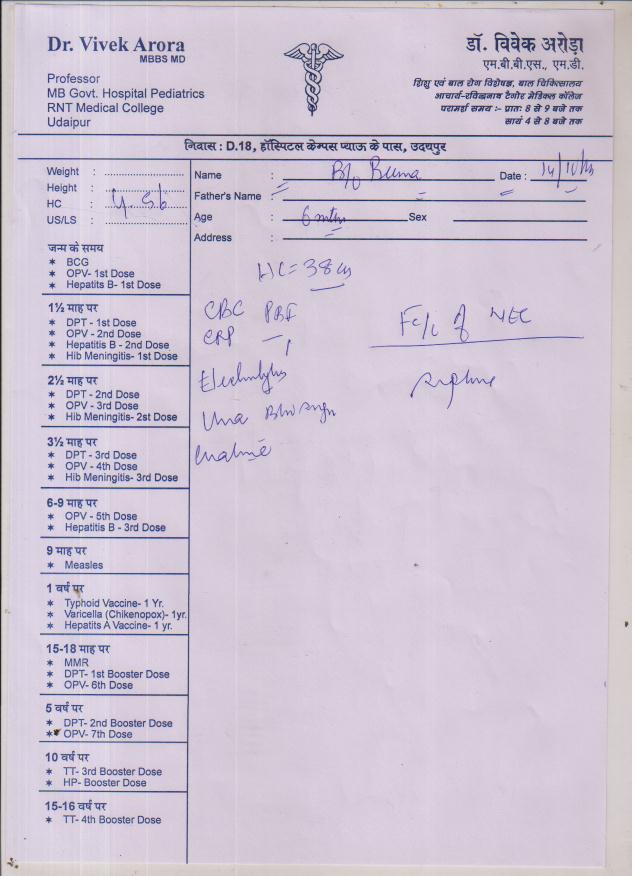 Dr. Vivek Arora
MBBS MD
Professor
MB Govt. Hospital Pediatrics
RNT Medical College
Udaipur
डॉ. विवेक अरोड़ा
एम.बी.बी.एस., एम.डी.
शिशु एवं बाल रोग विशेषज्ञ, बाल चिकित्सालय
आचार्य-रविन्द्रनाथ टैगोर मेडिकल कॉलेज
परामर्श समय :- प्रातः 8 से 9 बजे तक
सायं 4 से 8 बजे तक
निवास : D.18, हॉस्पिटल केम्पस प्याऊ के पास, उदयपुर
Weight :
Height :
HC :
US/LS :
जन्म के समय
* BCG
* OPV- 1st Dose
* Hepatits B- 1st Dose
1½ माह पर
* DPT - 1st Dose
* OPV - 2nd Dose
* Hepatitis B - 2nd Dose
* Hib Meningitis- 1st Dose
2½ माह पर
* DPT - 2nd Dose
* OPV - 3rd Dose
* Hib Meningitis- 2st Dose
3½ माह पर
* DPT - 3rd Dose
* OPV - 4th Dose
* Hib Meningitis- 3rd Dose
6-9 माह पर
* OPV - 5th Dose
* Hepatitis B - 3rd Dose
9 माह पर
* Measles
1 वर्ष पर
* Typhoid Vaccine- 1 Yr.
* Varicella (Chikenopox)- 1yr.
* Hepatits A Vaccine- 1 yr.
15-18 माह पर
* MMR
* DPT- 1st Booster Dose
* OPV- 6th Dose
5 वर्ष पर
* DPT- 2nd Booster Dose
* OPV- 7th Dose
10 वर्ष पर
* TT- 3rd Booster Dose
* HP- Booster Dose
15-16 वर्ष पर
* TT- 4th Booster Dose
Name : B/o Date : 14/10/
Father's Name :
Age : 6 mths Sex
Address :
HC = 38 cm
CBC PBF
CRP
Electrolytes
Urea
F/c/o of NEC